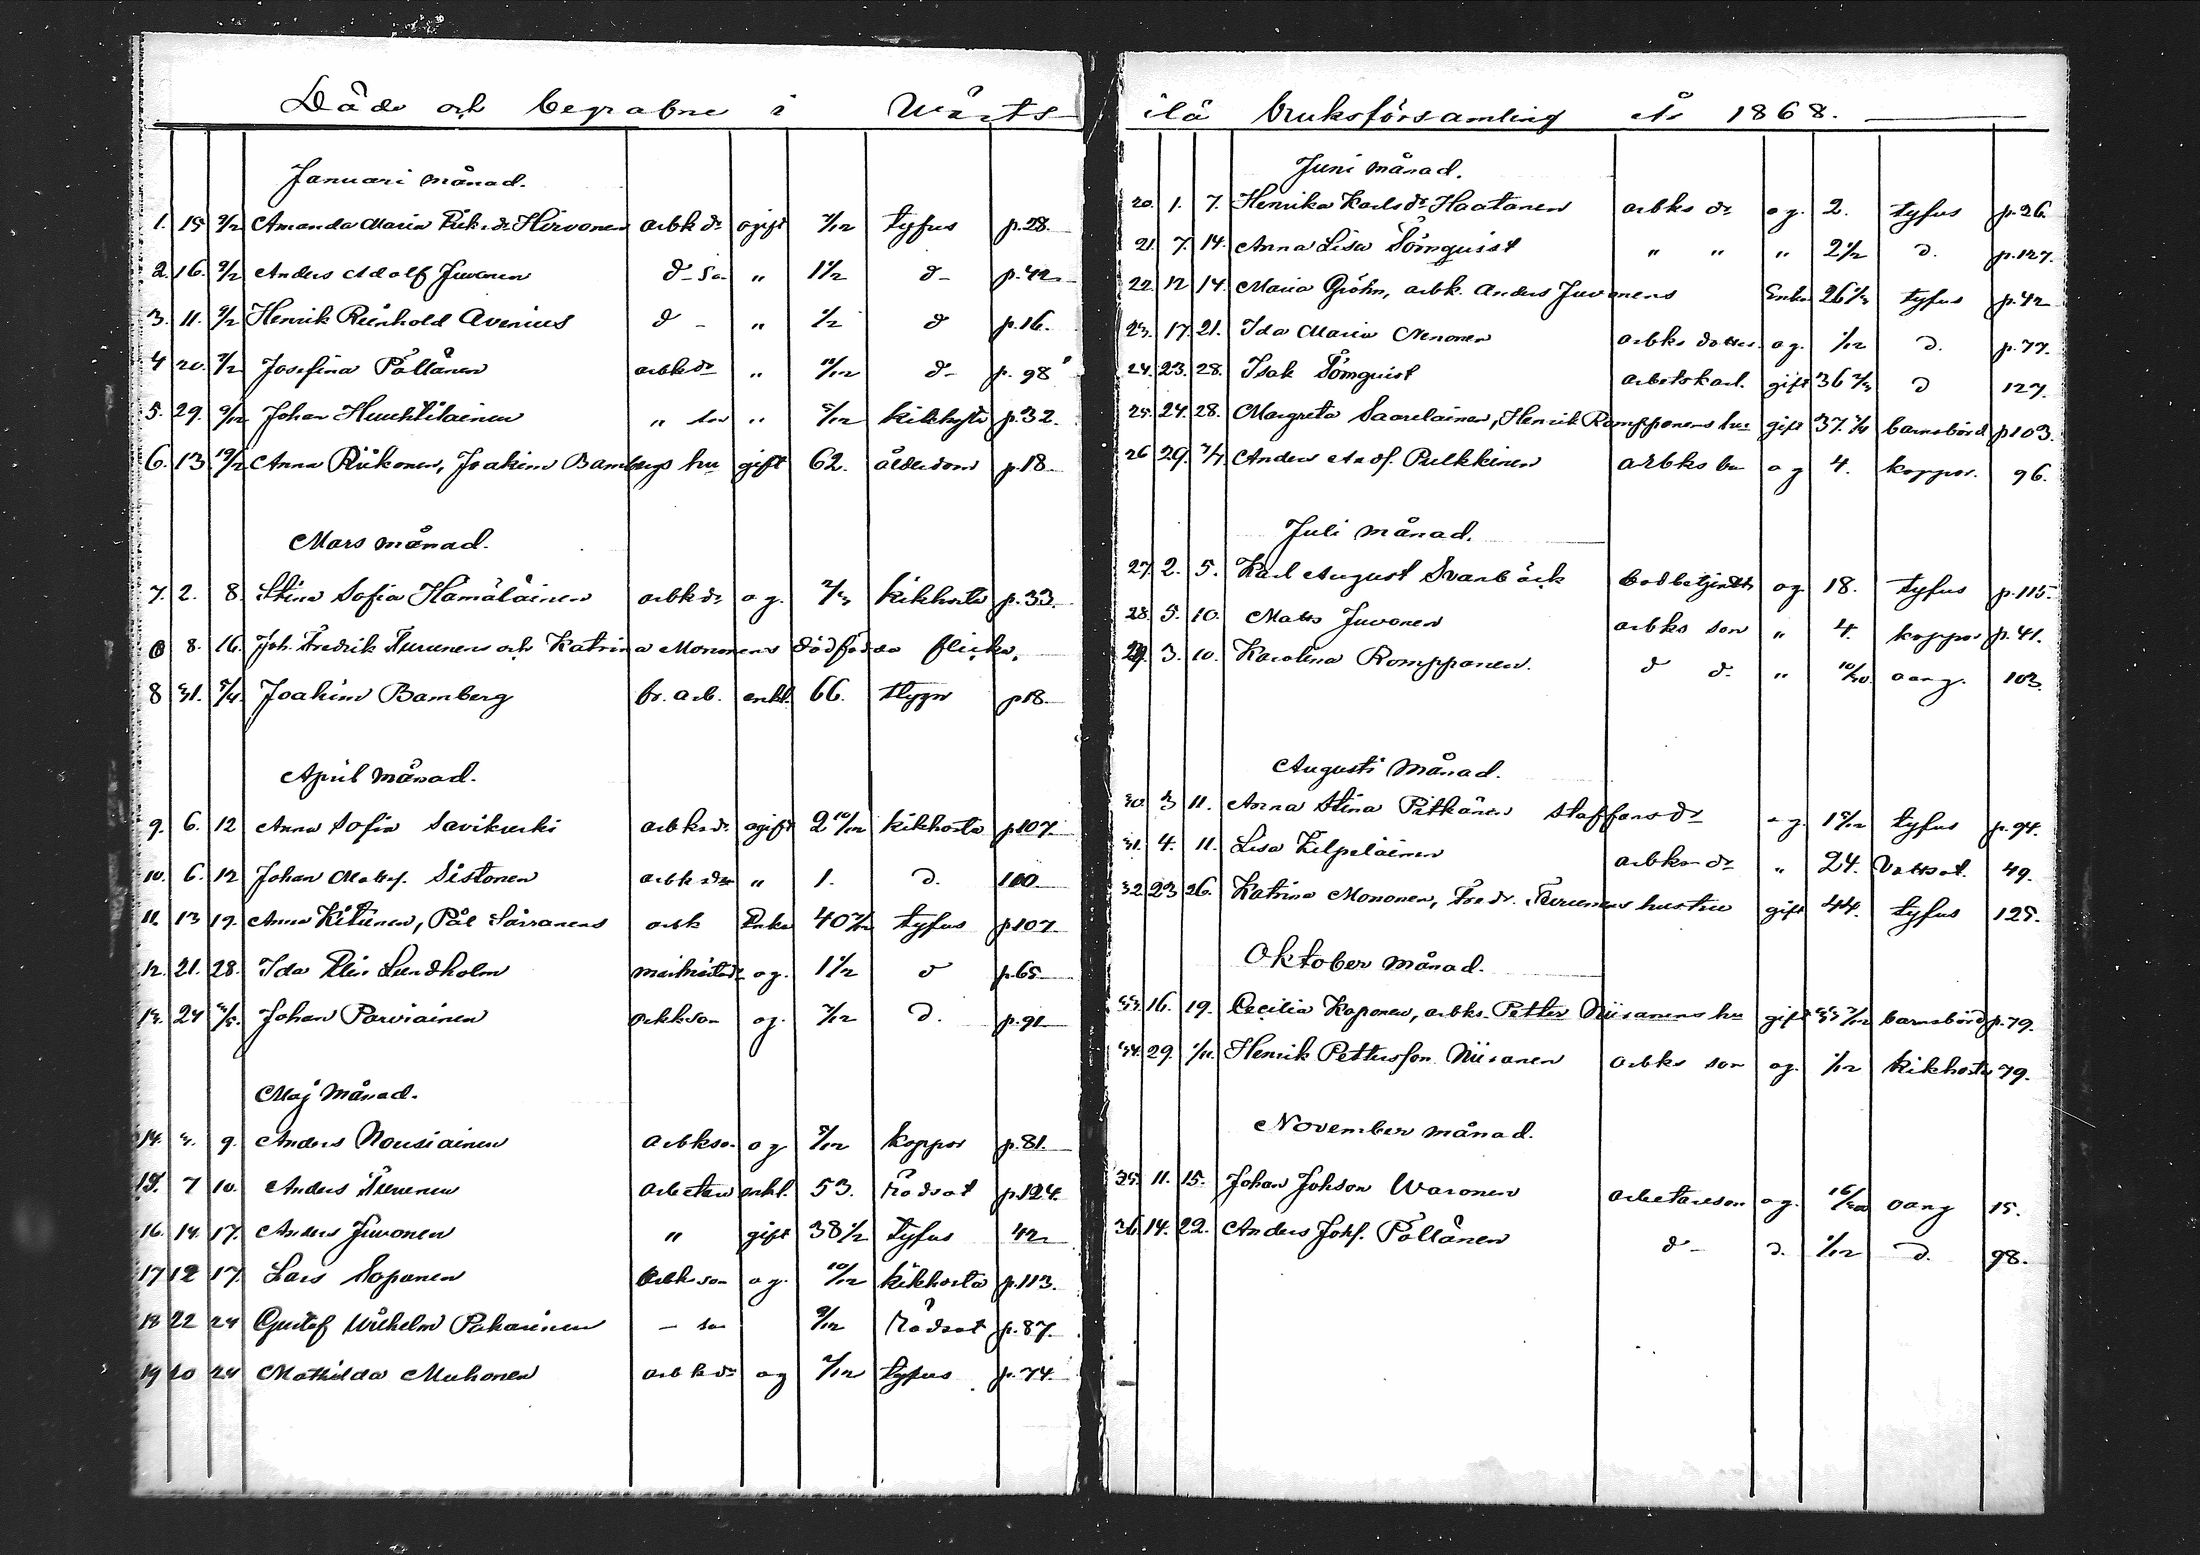 Döde och begrabne i Wärts
Januari månad.
1. 15 9/2 Amanda Maria Hirvonen arbk dr ogift 7/12 tyfus p.28.
2. 16. 9/2 Anders Adolf Juvonen d- son " 1 1/2 d- p.42
3. 11. 9/2 Henrik Reinhold Avenius d - " 1/2 d p.16.
4 20. 9/2 Josefina Pöllänen arbk dr " d- p. 98
5. 29. Johan Huuhtilainen " son " 5/12 kikhosta p.32.
6. 13 Anna Riikonen, Joakim Bambergs hu gift 62. ålderdom p.18
Mars månad.
7. 2. 8. Stina Sofia Hämäläinen arbk dr og. kikhosta p.33.
0 8. 16. Joh. Fredrik Turunens och Katrina Monones dödfödda flicka.
8 31. 5/4 Joakim Bamberg fr. arb. enkl. 66. styggn p18
April månad.
9. 6. 12 Anna Sofia Savikurki arbks dr ogift 2 10/12 kikhosta p107
10. 6. 12 Johan Mattsf. Sistonen arbk " 1. d. 100
11. 13 19. Anna Kitunen, Pål Särranens arbk Enka 40 tyfus p107
12. 21. 28. Ida Elis Lundholm og. 1 1/2 d p.65
13. 24 3/5. Johan Parviainen arbkson og. 7/12 d. p.91
Maj månad.
14. 3. 9. Anders Nousiainen arbkson og 5/12 koppor p.81.
15. 7 10. Anders Turunen arbetare enkl. 53. rödsot p.124
16. 14. 17. Anders Juvonen " gift 38 1/2 tyfus 42
17 12 17. Lars Sopanen arbkson og. 10/12 kikhosta p.113.
18 22 24 Gustaf Wilhelm Pakarinen - son 9/12 rödsot p.87.
19 20 24 Mathilda Muhonen arbk dr og 7/12 tyfus p.74.
ilä bruksförsamling år 1868.
Juni månad.
20. 1. 7. Henrika Karlsdr Haatanen arbks dr og. 2. tyfus p.26.
21. 7. 14. Anna Lisa Törnquist " " " 2 1/2 d. p.127.
22. 12 14. Maria Gröhn, arbk. Anders Juvonens Enka 26 tyfus p.42
23. 17. 21. Ida Maria Nenonen arbks dotter og. 1/12 d. p.77.
24. 23. 28. Isak Törnquist arbetskarl. gift 36 d 127.
25. 24. 28. Margreta Saarelainen, Henrik Romppanens hu gift 37. barnsbörd p103.
26 29. Anders Pulkkinen arbks og 4. koppor. 96.
Juli månad.
27. 2. 5. Karl August Svanbäck bodbetjent og 18. tyfus p.115.
28. 5. 10. Matts Juvonen arbks son " 4. koppor p.41.
29. 3. 10. Karolina Romppanen. d d. " 10/30. oang. 103.
Augusti månad.
30. 3 11. Anna Stina Pitkänen Staffans dr og. tyfus p.94.
31. 4. 11. Lisa Kilpeläinen arbks dr " 24. Vattsot. 49.
32. 23 26. Katrina Mononen, Fredr. Turunens hustru gift 44. tyfus 125.
Oktober månad.
33. 16. 19. Cecilia Koponen, arbks. Petter Niiranens hu gift 33 barnsbörd p.79.
34. 29. 1/11. Henrik Pettersson Niiranen arbks son og. 1/12 kikhosta 79.
November månad.
35. 11. 15. Johan Johson Waronen arbetareson og. 16/30 oang 15.
36. 14. 22. Anders Johs. Pöllänen d- d. 1/12 d. 98.